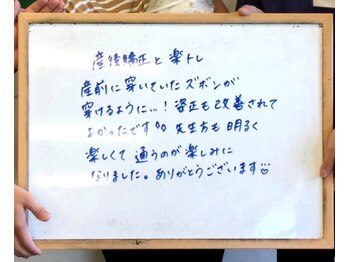 産後矯正と楽トレ
産前に穿いていたズボンが
穿けるように…! 姿正も改善されて
よかったです°° 先生方も明るく
楽しくて通うのが楽しみに
なりました。ありがとうございます♡